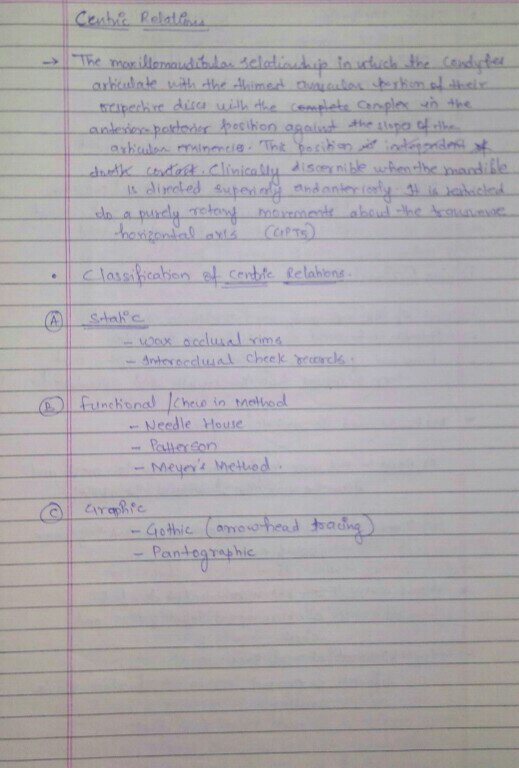 Centric Relations
→ The maxillomandibular relationship in which the condyles
articulate with the thinnest avascular portion of their
respective discs with the complete complex in the
anterior-posterior position against the slopes of the
articular eminencie. This position is independent of
tooth contact. Clinically discernible when the mandible
is directed superiorly and anteriorly. It is restricted
to a purely rotary movements about the transverse
horizontal axis (GPT5)
• Classification of Centric Relations.
(A) Static
- Wax occlusal rims
- Interocclusal Check records.
(B) Functional / Chew in Method
- Needle House
- Patterson
- Meyer's Method.
(C) Graphic
- Gothic (arrowhead tracing)
- Pantographic